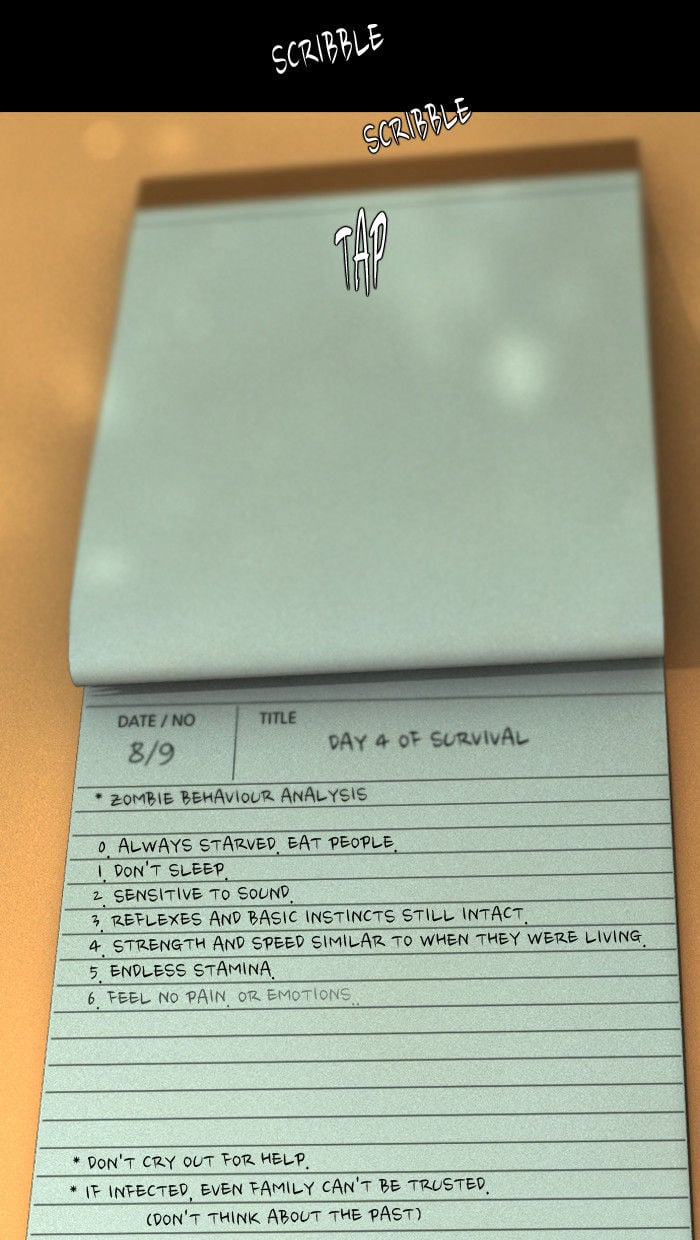 SCRIBBLE
SCRIBBLE
TAP
DATE / NO
TITLE
8/9
DAY 4 OF SURVIVAL
* ZOMBIE BEHAVIOUR ANALYSIS
0. ALWAYS STARVED. EAT PEOPLE.
1. DON'T SLEEP.
2. SENSITIVE TO SOUND.
3. REFLEXES AND BASIC INSTINCTS STILL INTACT.
4. STRENGTH AND SPEED SIMILAR TO WHEN THEY WERE LIVING.
5. ENDLESS STAMINA.
6. FEEL NO PAIN. OR EMOTIONS..
* DON'T CRY OUT FOR HELP.
* IF INFECTED, EVEN FAMILY CAN'T BE TRUSTED.
(DON'T THINK ABOUT THE PAST)